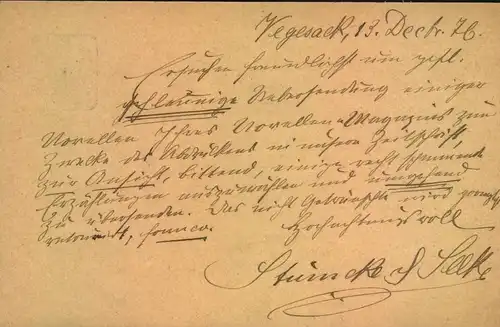 Vegesack, 13. Decbr. 76.
Ersuchen freundlichst um gefl.
schleunige Uebersendung einiger
Novellen Ihres Novellen-Magazins zum
Zwecke des Abdruckens in unsere Zeitschrift,
zur Ansicht, bittend, einige recht spannende
Erzählungen auszuwählen und umgehend
zu übersenden. Das nicht Gewünschte wird
retournirt, franco.
Hochachtungsvoll
Stümcke &